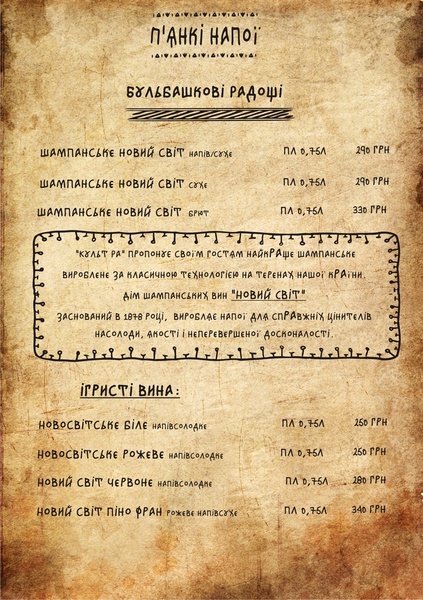 П'ЯНКІ НАПОЇ
БУЛЬБАШКОВІ РАДОЩІ
ШАМПАНСЬКЕ НОВИЙ СВІТ НАПІВ/СУХЕ ПЛ 0,75Л 290 ГРН
ШАМПАНСЬКЕ НОВИЙ СВІТ СУХЕ ПЛ 0,75Л 290 ГРН
ШАМПАНСЬКЕ НОВИЙ СВІТ БРЮТ ПЛ 0,75Л 330 ГРН
"КУЛЬТ РА" ПРОПОНУЄ СВОЇМ ГОСТЯМ НАЙКРАЩЕ ШАМПАНСЬКЕ
ВИРОБЛЕНЕ ЗА КЛАСИЧНОЮ ТЕХНОЛОГІЄЮ НА ТЕРЕНАХ НАШОЇ КРАЇНИ.
ДІМ ШАМПАНСЬКИХ ВИН "НОВИЙ СВІТ"
ЗАСНОВАНИЙ В 1878 РОЦІ, ВИРОБЛЯЄ НАПОЇ ДЛЯ СПРАВЖНІХ ЦІНИТЕЛІВ
НАСОЛОДИ, ЯКОСТІ І НЕПЕРЕВЕРШЕНОЇ ДОСКОНАЛОСТІ.
ІГРИСТІ ВИНА:
НОВОСВІТСЬКЕ БІЛЕ НАПІВСОЛОДКЕ ПЛ 0,75Л 250 ГРН
НОВОСВІТСЬКЕ РОЖЕВЕ НАПІВСОЛОДКЕ ПЛ 0,75Л 250 ГРН
НОВИЙ СВІТ ЧЕРВОНЕ НАПІВСОЛОДКЕ ПЛ 0,75Л 280 ГРН
НОВИЙ СВІТ ПІНО ФРАН РОЖЕВЕ НАПІВСУХЕ ПЛ 0,75Л 340 ГРН